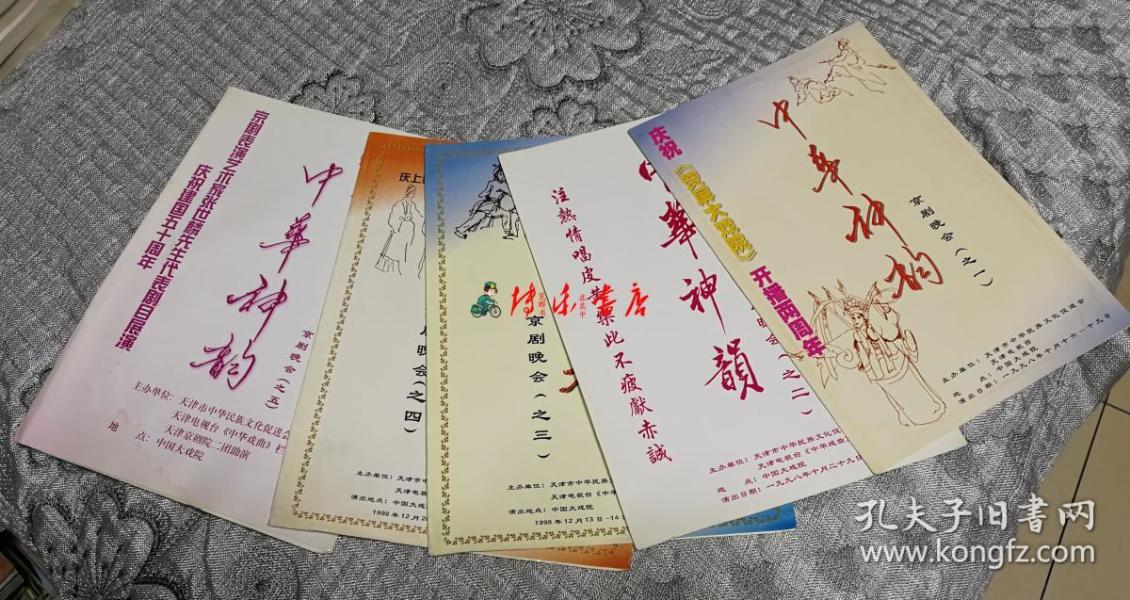 京剧表演艺术家张世麟先生代表剧目展演
庆祝建国五十周年
中华神韵
京剧晚会(之五)
主办单位:天津市中华民族文化促进会
天津电视台《中华戏曲》栏
天津京剧院二团助演
地 点:中国大戏院
庆上
晚会(之四)
主办单位:天津市中华民
天津电视
演出地点:中国大戏院
1998年12月2
京剧晚会(之三)
主办单位:天津市中华民族
天津电视台《中华
演出地点:中国大戏院
1998年12月13日-14
中華神韻
注熱情唱皮黄樂此不疲獻赤誠
晚会(之二)
主办单位:天津市中华民族文化促
天津电视台《中华戏曲
地 点:中国大戏院
演出日期:一九九八年十月二十九日
庆祝《京昆大戏院》开播两周年
中华神韵
京剧晚会(之一)
主办单位:天津市中华民族文化促进会
天津电视台
地 点:中国大戏院
博乐書店
孔夫子旧書网
www.kongfz.com